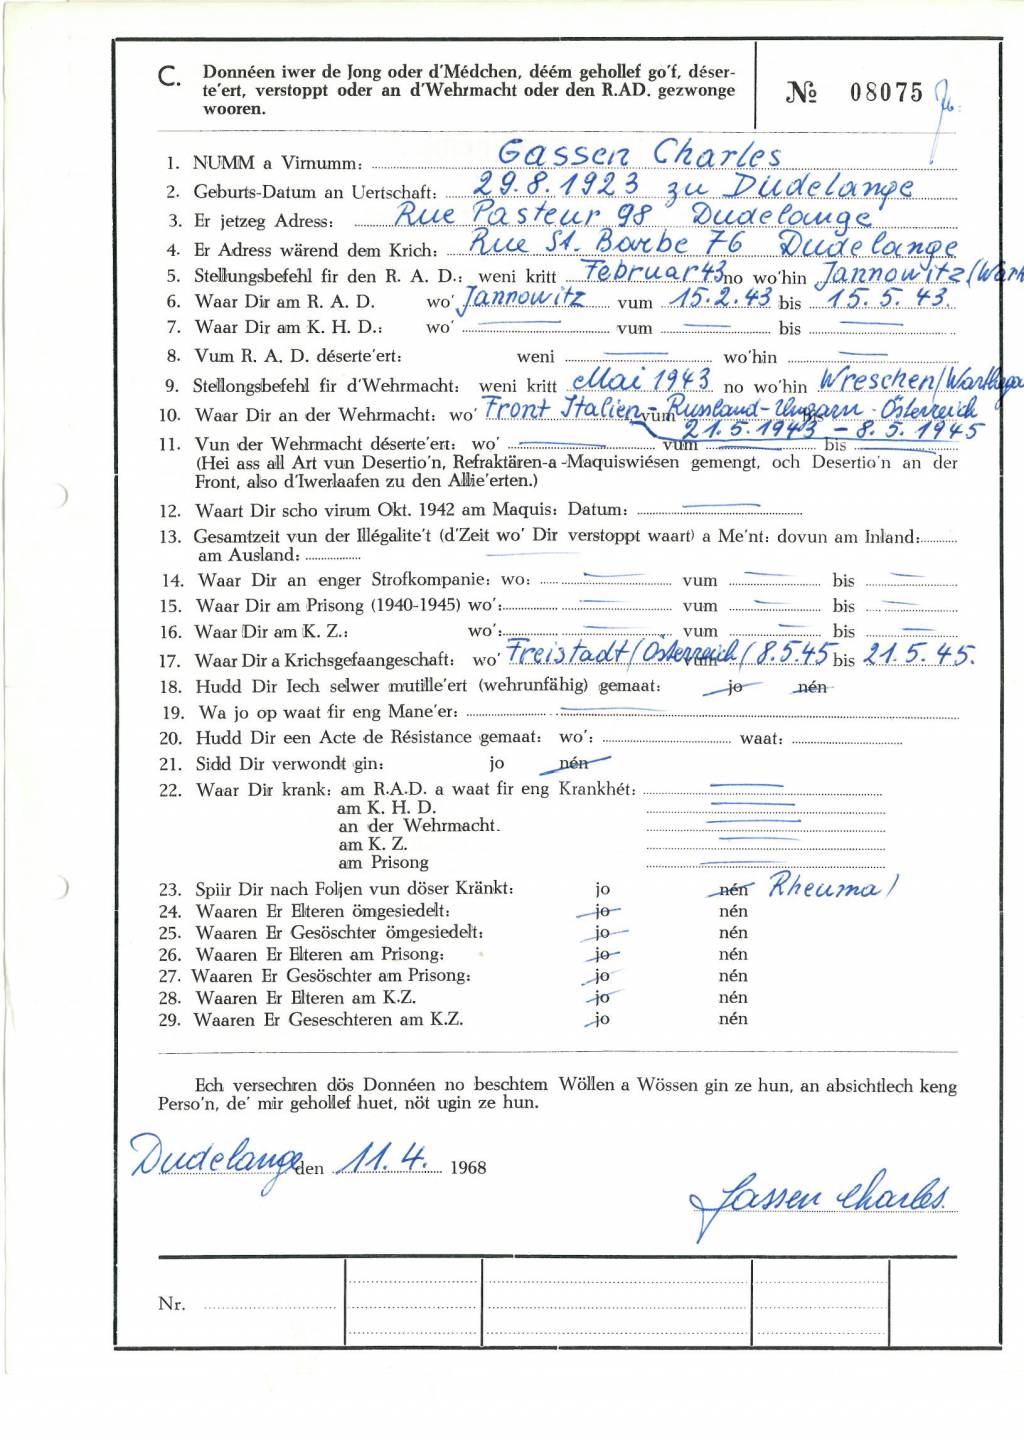 C. Donnéen iwer de Jong oder d'Médchen, déém gehollef go'f, déser-
te'ert, verstoppt oder an d'Wehrmacht oder den R.AD. gezwonge
wooren.
№ 08075
1. NUMM a Virnumm: Gassen Charles
2. Geburts-Datum an Uertschaft: 29.8.1923 zu Dudelange
3. Er jetzeg Adress: Rue Pasteur 98 Dudelange
4. Er Adress wärend dem Krich: Rue St. Barbe 76 Dudelange
5. Stellungsbefehl fir den R. A. D.: weni kritt Februar 43 no wo'hin Jannowitz/(Wart
6. Waar Dir am R. A. D. wo' Jannowitz vum 15.2.43 bis 15.5.43.
7. Waar Dir am K. H. D.: wo' — vum — bis —
8. Vum R. A. D. déserte'ert: weni — wo'hin —
9. Stellongsbefehl fir d'Wehrmacht: weni kritt Mai 1943 no wo'hin Wreschen/Warthega
10. Waar Dir an der Wehrmacht: wo' Front Italien - Russland - Ungarn - Österreich vum bis
21.5.1943 - 8.5.1945
11. Vun der Wehrmacht déserte'ert: wo' — vum — bis —
(Hei ass all Art vun Desertio'n, Refraktären-a -Maquiswiésen gemengt, och Desertio'n an der
Front, also d'Iwerlaafen zu den Allie'erten.)
12. Waart Dir scho virum Okt. 1942 am Maquis: Datum: —
13. Gesamtzeit vun der Illégalite't (d'Zeit wo' Dir verstoppt waart) a Me'nt: dovun am Inland:
am Ausland: —
14. Waar Dir an enger Strofkompanie: wo: — vum — bis —
15. Waar Dir am Prisong (1940-1945) wo': — vum — bis —
16. Waar Dir am K. Z.: wo': — vum — bis —
17. Waar Dir a Krichsgefaangeschaft: wo' Freistadt/(Österreich/ vum 8.5.45 bis 21.5.45.
18. Hudd Dir Iech selwer mutille'ert (wehrunfähig) gemaat: jo nén
19. Wa jo op waat fir eng Mane'er: —
20. Hudd Dir een Acte de Résistance gemaat: wo': waat:
21. Sidd Dir verwondt gin: jo nén
22. Waar Dir krank: am R.A.D. a waat fir eng Krankhét: —
am K. H. D. —
an der Wehrmacht. —
am K. Z. —
am Prisong —
23. Spiir Dir nach Foljen vun döser Kränkt: jo nén Rheuma)
24. Waaren Er Elteren ömgesiedelt: jo nén
25. Waaren Er Gesöschter ömgesiedelt: jo nén
26. Waaren Er Elteren am Prisong: jo nén
27. Waaren Er Gesöschter am Prisong: jo nén
28. Waaren Er Elteren am K.Z. jo nén
29. Waaren Er Geseschteren am K.Z. jo nén
Ech versechren dös Donnéen no beschtem Wöllen a Wössen gin ze hun, an absichtlech keng
Perso'n, de' mir gehollef huet, nöt ugin ze hun.
Dudelange den 11.4. 1968
Gassen Charles.
Nr.